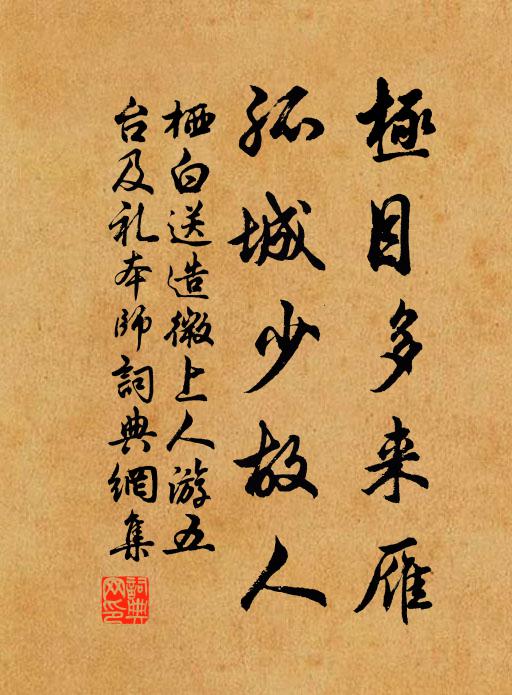 極目多来雁
孤城少故人
栖白送造微上人游五
台及礼本師詞典網集
詞典
网印